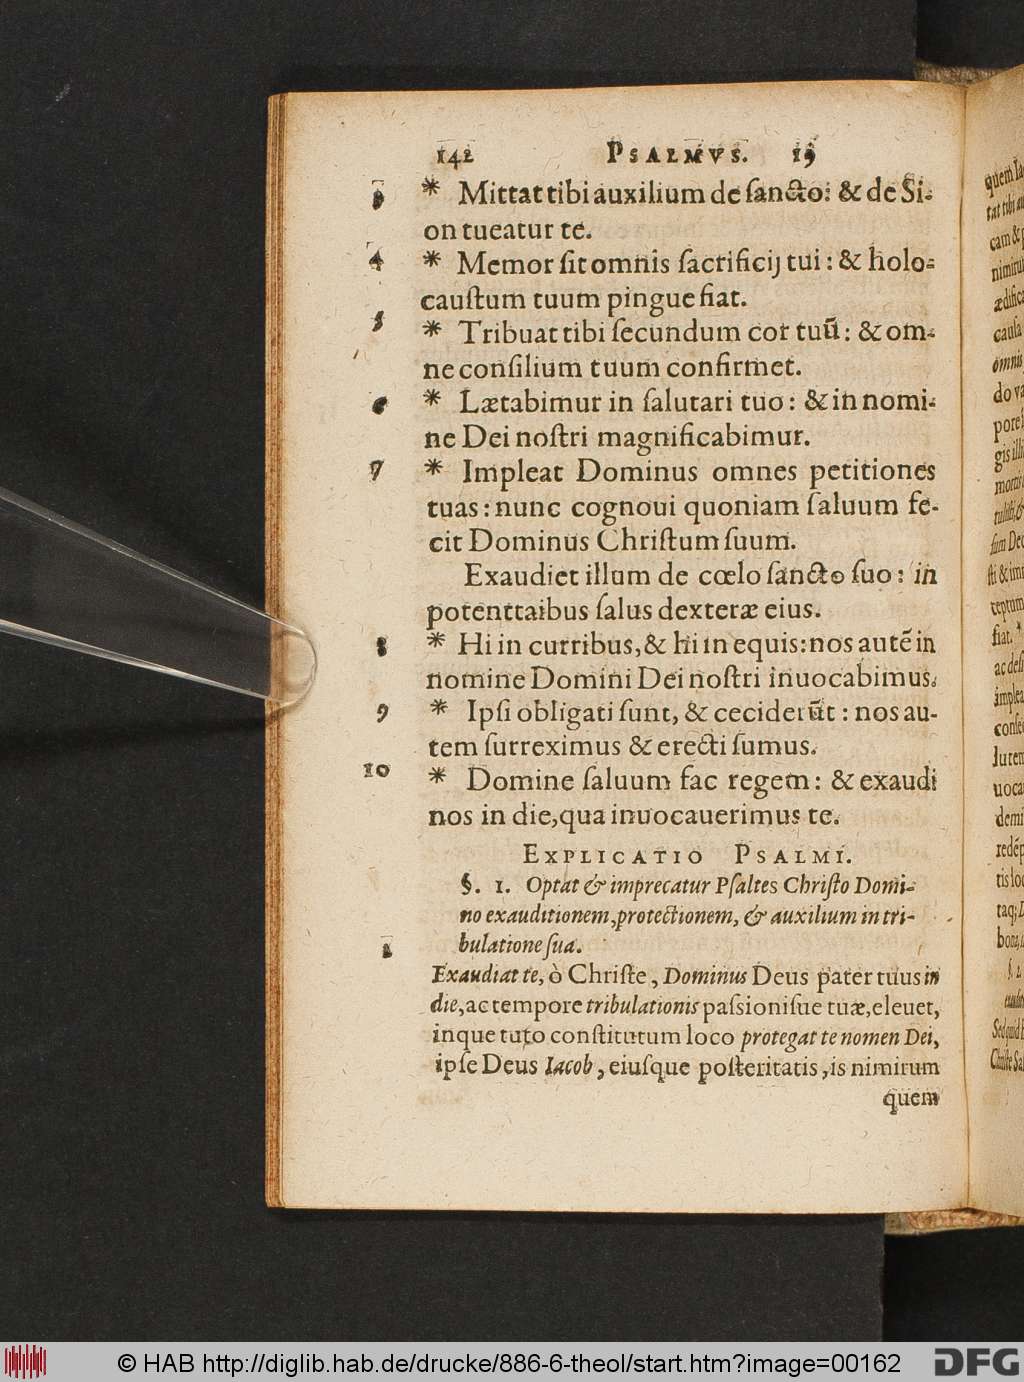 142 PSALMVS. 19
3 * Mittat tibi auxilium de sancto: & de Si-
on tueatur te.
4 * Memor sit omnis sacrificij tui : & holo-
caustum tuum pingue fiat.
5 * Tribuat tibi secundum cor tuũ : & om-
ne consilium tuum confirmet.
6 * Lætabimur in salutari tuo : & in nomi-
ne Dei nostri magnificabimur.
7 * Impleat Dominus omnes petitiones
tuas : nunc cognoui quoniam saluum fe-
cit Dominus Christum suum.
Exaudiet illum de cœlo sancto suo : in
potenttaibus salus dexteræ eius.
8 * Hi in curribus, & hi in equis: nos autẽ in
nomine Domini Dei nostri inuocabimus.
9 * Ipsi obligati sunt, & ceciderũt : nos au-
tem surreximus & erecti sumus.
10 * Domine saluum fac regem : & exaudi
nos in die, qua inuocauerimus te.
EXPLICATIO PSALMI.
§. 1. Optat & imprecatur Psaltes Christo Domi-
no exauditionem, protectionem, & auxilium in tri-
bulatione sua.
1 Exaudiat te, ò Christe, Dominus Deus pater tuus in
die, ac tempore tribulationis passionisue tuæ, eleuet,
inque tuto constitutum loco protegat te nomen Dei,
ipse Deus Iacob, eiusque posteritatis, is nimirum
quem
quem Ia
tat tibi au
cam & p
nimirum
ædifica
causa
omnis
do va
pore
gis illi
mortis
tulisti, &
sum Deo
sti & im
ceptum
fiat. *
ac des
implea
conse
lutem
uoca
demi
redẽp
tis loc
taq;
bona,
§. 2.
Sed quid
Christe Sa
© HAB http://diglib.hab.de/drucke/886-6-theol/start.htm?image=00162
DFG